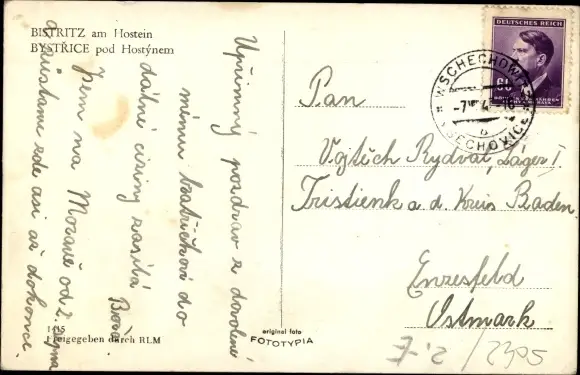 BISTRITZ am Hostein
BYSTŘICE pod Hostýnem
Upřímný pozdrav z dovolené
mému bratříčkovi do
dálné ciziny zasílá
Jsem na Moravě od 2. srpna
a zůstanu zde asi až dokonce.
1415
Freigegeben durch RLM
original foto
FOTOTYPIA
DEUTSCHES REICH
60
WSCHECHOWITZ
VŠECHOVICE
b
Pan
Vojtěch Rydval, Läger I.
Tristienk a. d. Kreis Baden
Enzesfeld
Ostmark
2395